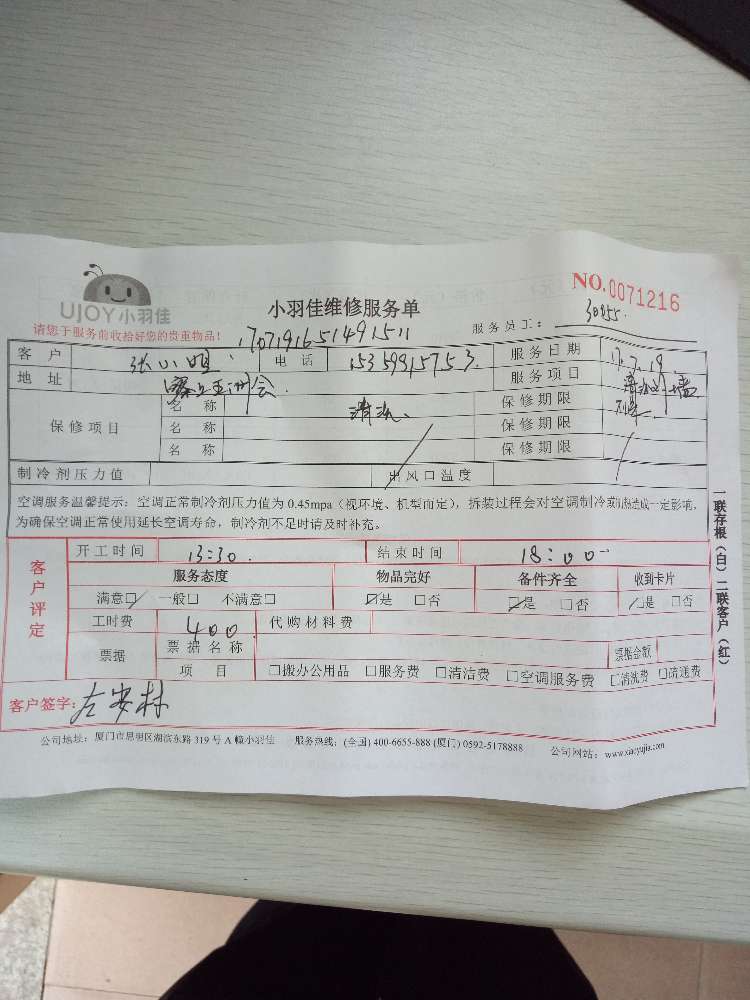 UJOY小羽佳
小羽佳维修服务单
NO.0071216
请您于服务前收拾好您的贵重物品!
1707191651491511
服务员工: 30255
客户 张小姐 电话 15359915753 服务日期 17.7.19
地址 服务项目
保修项目 名称 清洗 保修期限
名称 保修期限
名称 保修期限
制冷剂压力值 出风口温度
空调服务温馨提示:空调正常制冷剂压力值为0.45mpa(视环境、机型而定),拆装过程会对空调制冷或制热造成一定影响,
为确保空调正常使用延长空调寿命,制冷剂不足时请及时补充。
客户评定
开工时间 13:30 结束时间 18:00
服务态度 物品完好 备件齐全 收到卡片
满意□ 一般□ 不满意□ □是 □否 □是 □否 □是 □否
工时费 400 代购材料费
票据 票据名称 票据金额
项目 □搬办公用品 □服务费 □清洁费 □空调服务费 □清洗费 □疏通费
客户签字:
公司地址:厦门市思明区湖滨东路319号A幢小羽佳 服务热线:(全国)400-6655-888(厦门)0592-5178888 公司网站:www.xiaoyujia.com
一联存根(白)二联客户(红)